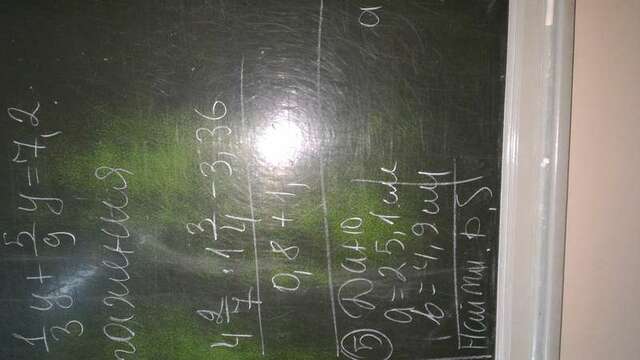 1/3 y + 5/9 y = 7,2
ражения
4 2/7 · 1 3/4 - 3,36
0,8 + 1,
5 Дано
a = 25,1 см
b = 4,9 см
Найти. P, S
a